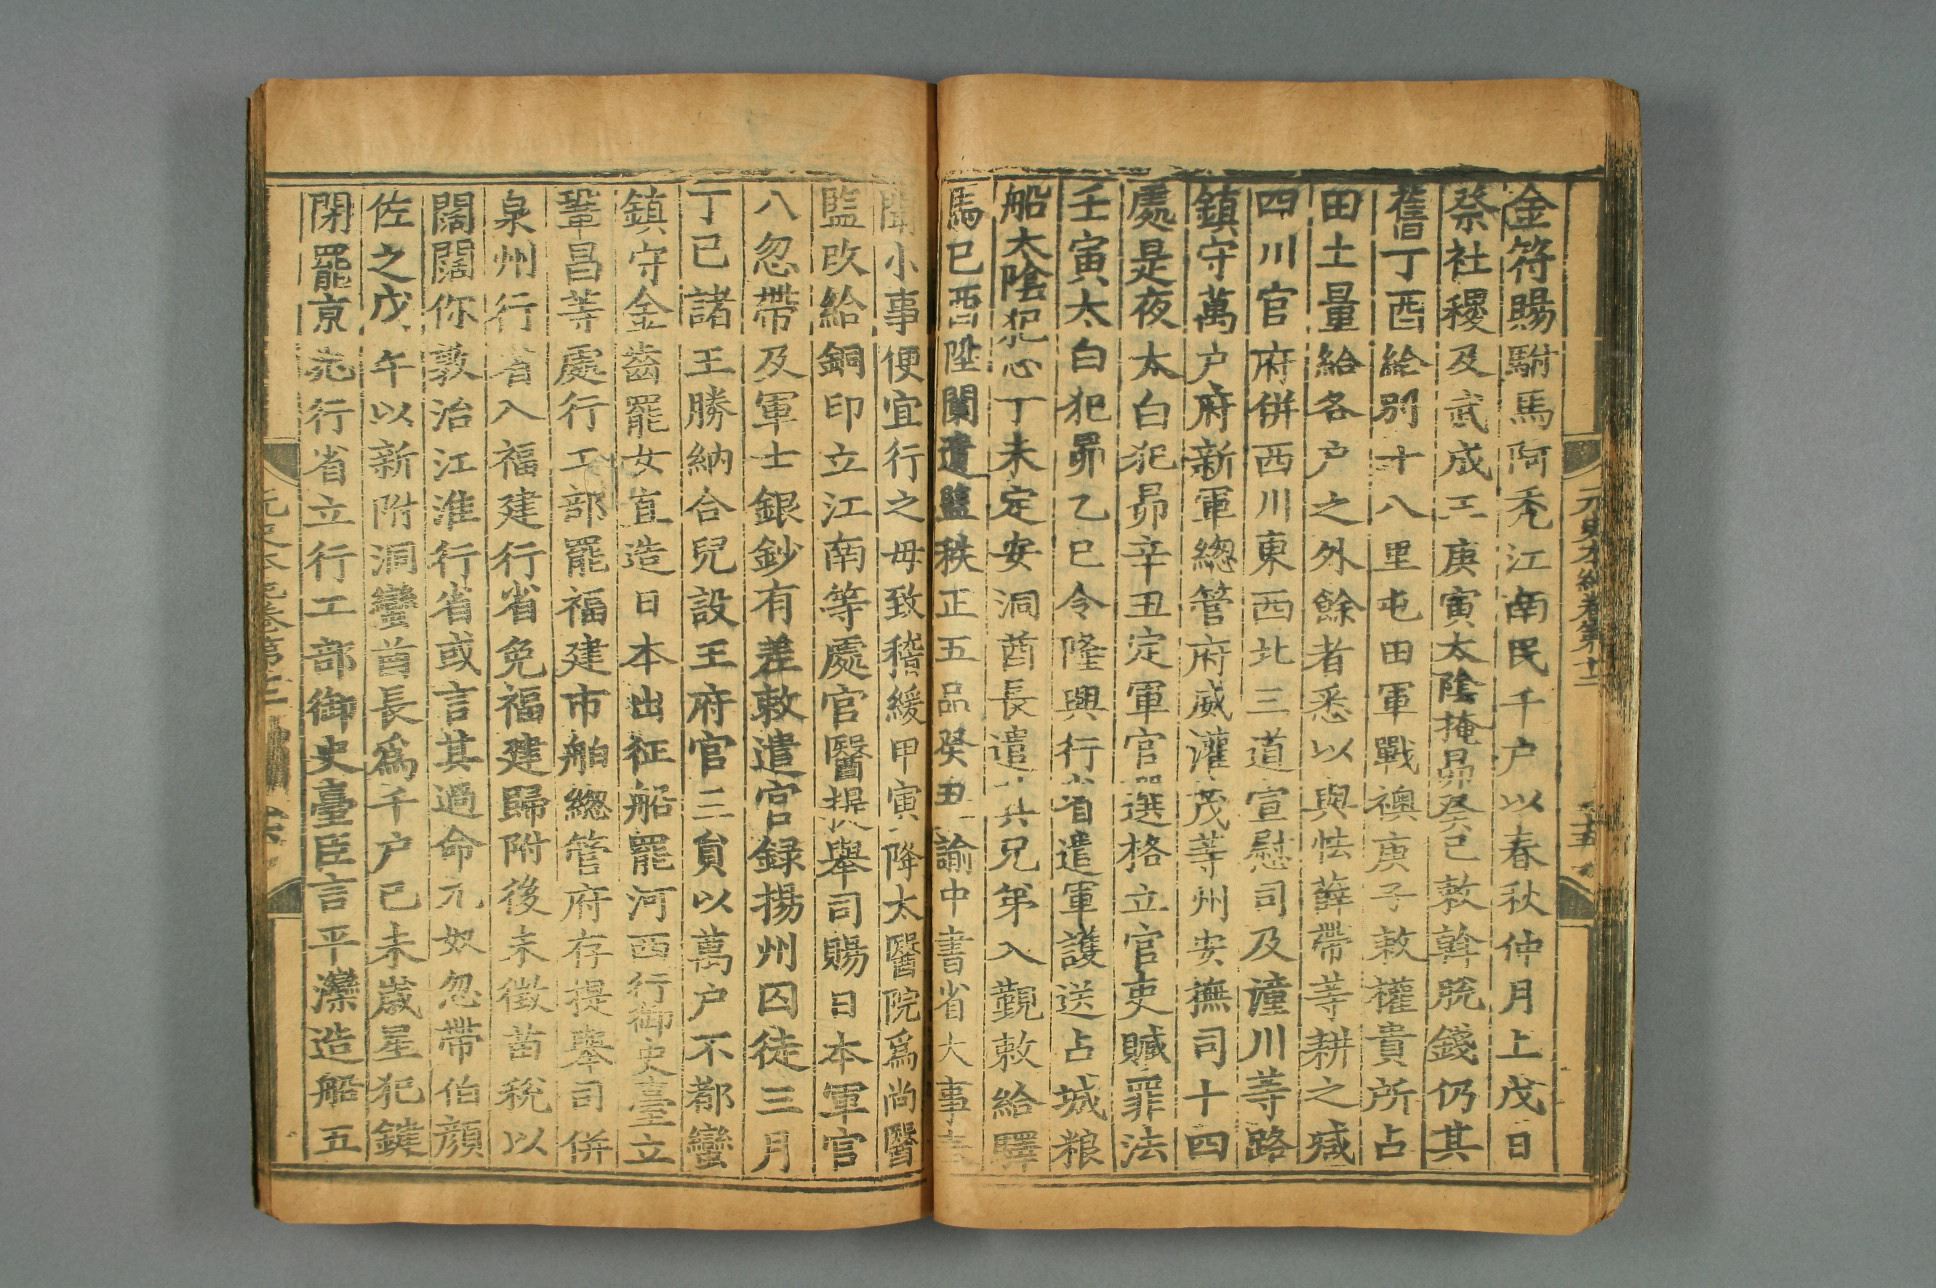 元史本紀卷第十二
十五
金符賜駙馬阿禿江南民千户以春秋仲月上戊日
祭社稷及武成王庚寅太陰掩昴癸巳敕斡脫錢仍其
舊丁酉給别十八里屯田軍戰襖庚子敕權貴所占
田土量給各户之外餘者悉以與怯薛帶等耕之癈
四川官府併西川東西北三道宣慰司及潼川等路
鎮守萬户府新軍總管府威灌茂等州安撫司十四
處是夜太白犯昴辛丑定軍官選格立官吏贓罪法
壬寅太白犯昴乙巳令隆興行省遣軍護送占城粮
船太陰犯心丁未定安洞酋長遣其兄弟入覲敕給驛
馬己酉陞闌遺監秩正五品癸丑諭中書省大事奏
聞小事便宜行之毋致稽緩甲寅降太醫院爲尚醫
監改給銅印立江南等處官醫提舉司賜日本軍官
八忽帶及軍士銀鈔有差敕遣官録揚州囚徒三月
丁巳諸王勝納合兒設王府官三員以萬户不都蠻
鎮守金齒罷女直造日本出征船罷河西行御史臺立
鞏昌等處行工部罷福建市舶總管府存提舉司併
泉州行省入福建行省免福建歸附後未徵苗稅以
闊闊你敦治江淮行省或言其過命兀奴忽帶伯顔
佐之戊午以新附洞蠻酋長爲千户己未歲星犯鍵
閉罷京兆行省立行工部御史臺臣言平灤造船五
元史本紀卷第十二